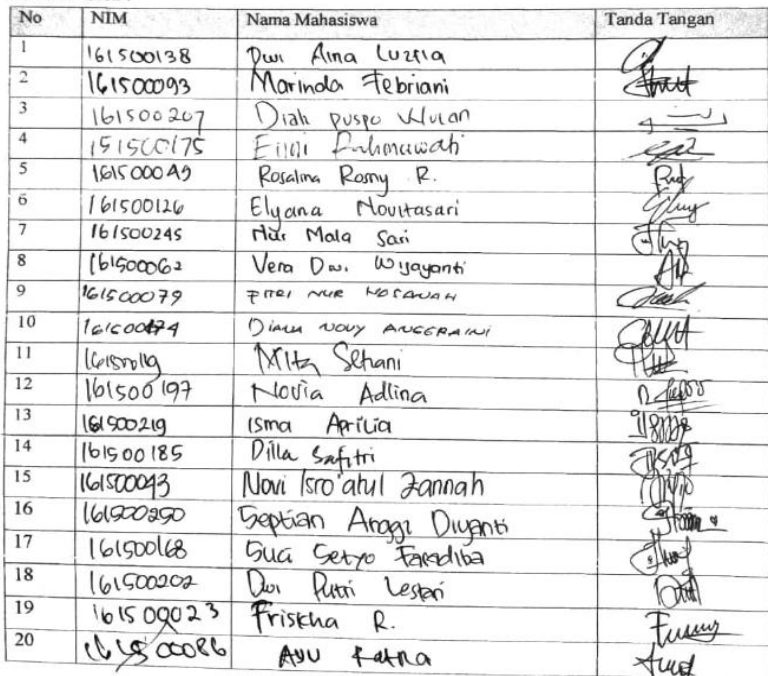 No NIM Nama Mahasiswa Tanda Tangan
1 161500138 Dwi Aina Luzfia
2 161500093 Marinda Febriani
3 161500207 Diah puspo Wulan
4 151500175 Rahmawati
5 161500049 Rosalina Rosny R.
6 161500126 Elyana Novitasari
7 161500245 Nur Mala Sari
8 161500062 Vera Dwi Wijayanti
9 161500079 FITRI NUR HASANAH
10 DIANA NOVY ANGGRAINI
11 Mita Setiani
12 161500197 Novia Adlina
13 161500219 Isma Aprilia
14 161500185 Dilla Safitri
15 161500043 Novi Isro'atul Jannah
16 161500250 Septian Anggi Diyanti
17 161500168 Suci Setyo Faradiba
18 161500202 Dwi Putri Lestari
19 161500023 Friskha R.
20 161500086 Ayu Ratna